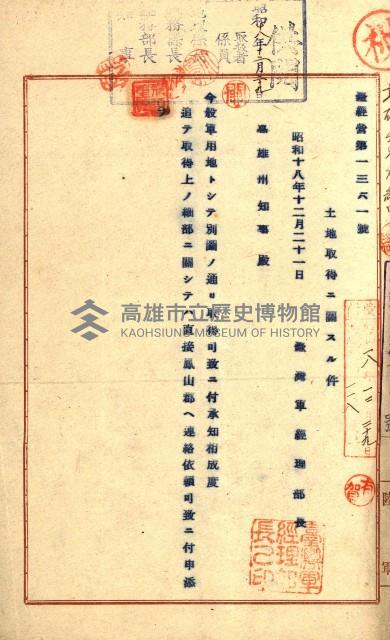 臺經營第一三六一號
土地取得ニ關スル件
昭和十八年十二月二十一日
臺灣軍經理部長
高雄州知事殿
今般軍用地トシテ別圖ノ通リ取得可致ニ付承知相成度
追テ取得上ノ細部ニ關シテハ直接鳳山郡ヘ連絡依頼可致ニ付申添
臺灣軍
經理部
長之印
供閱
高雄市立歷史博物館
KAOHSIUNG MUSEUM OF HISTORY